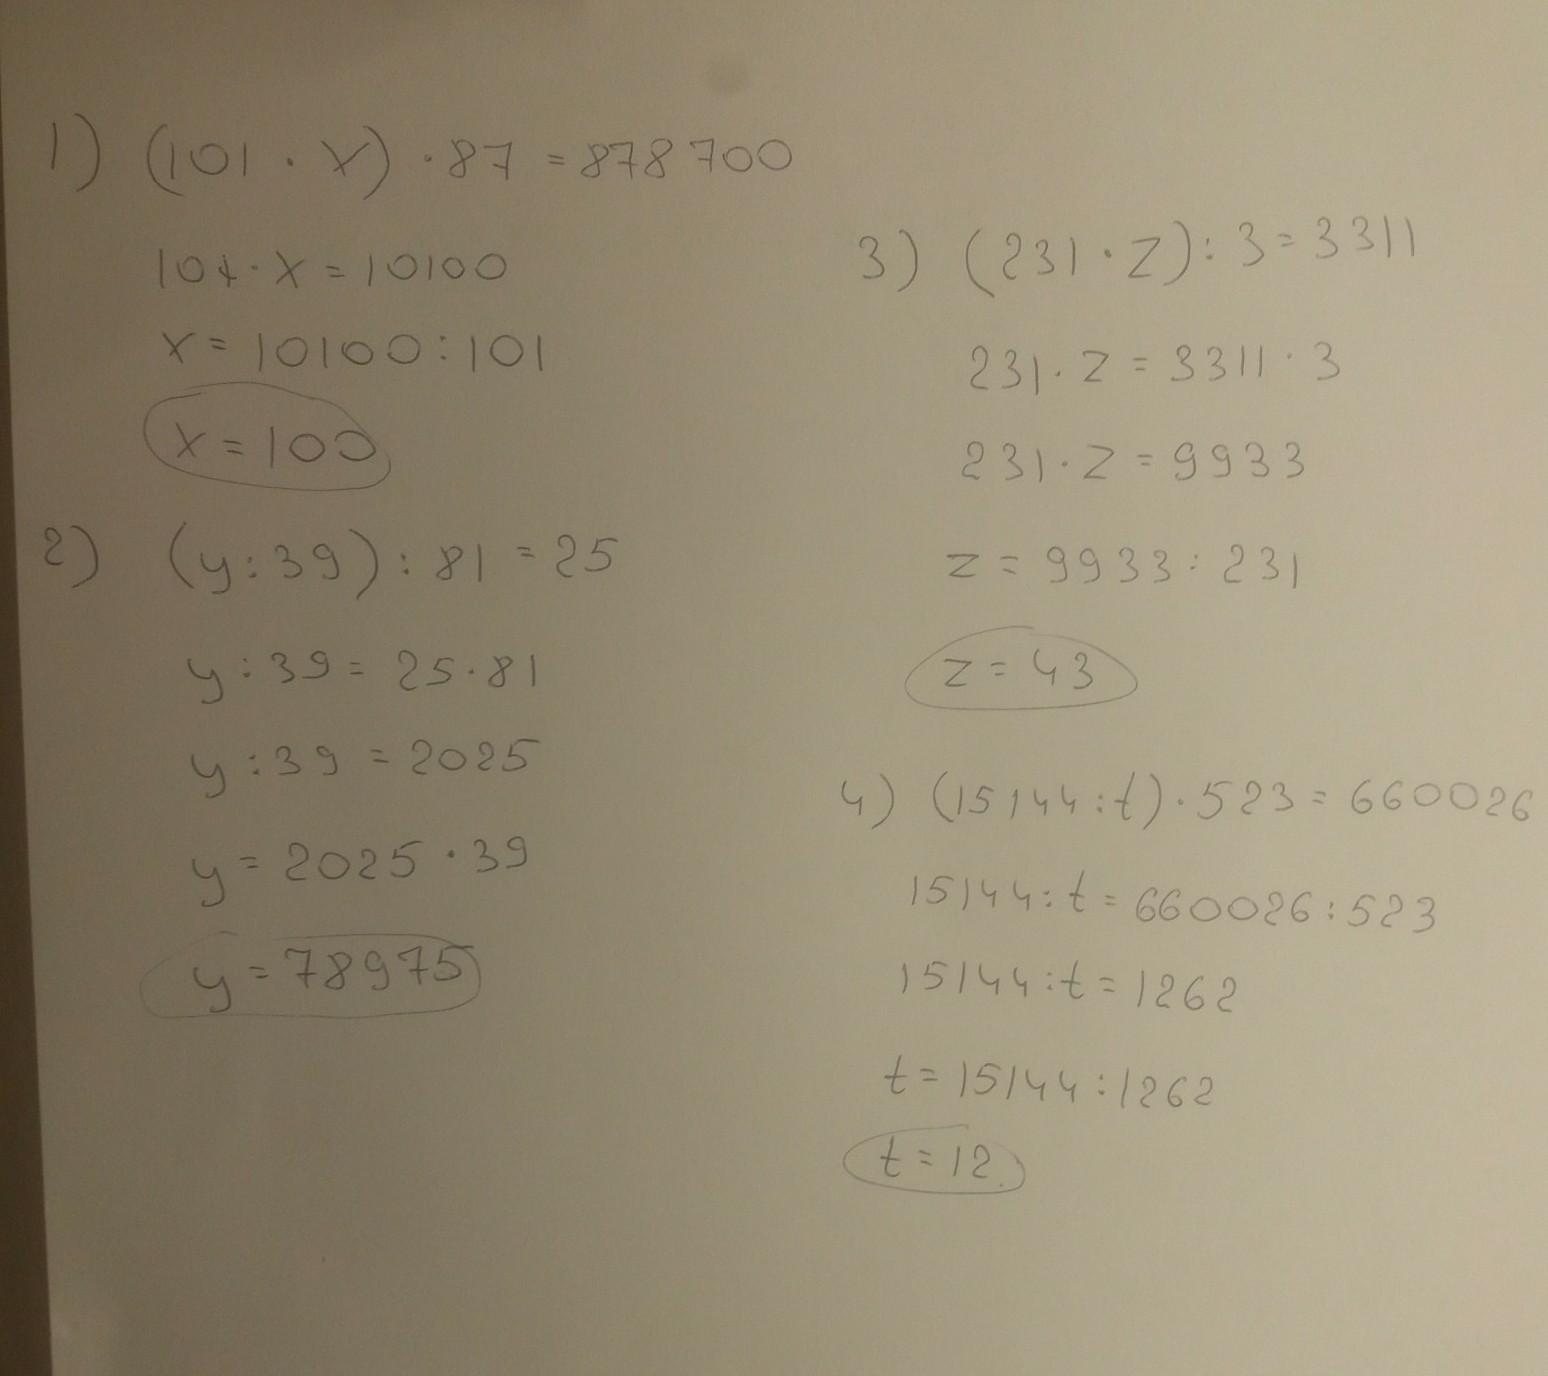 1) (101 · X) · 87 = 878700
101 · X = 10100
X = 10100 : 101
X = 100
2) (y : 39) : 81 = 25
y : 39 = 25 · 81
y : 39 = 2025
y = 2025 · 39
y = 78975
3) (231 · Z) : 3 = 3311
231 · Z = 3311 · 3
231 · Z = 9933
Z = 9933 : 231
Z = 43
4) (15144 : t) · 523 = 660026
15144 : t = 660026 : 523
15144 : t = 1262
t = 15144 : 1262
t = 12